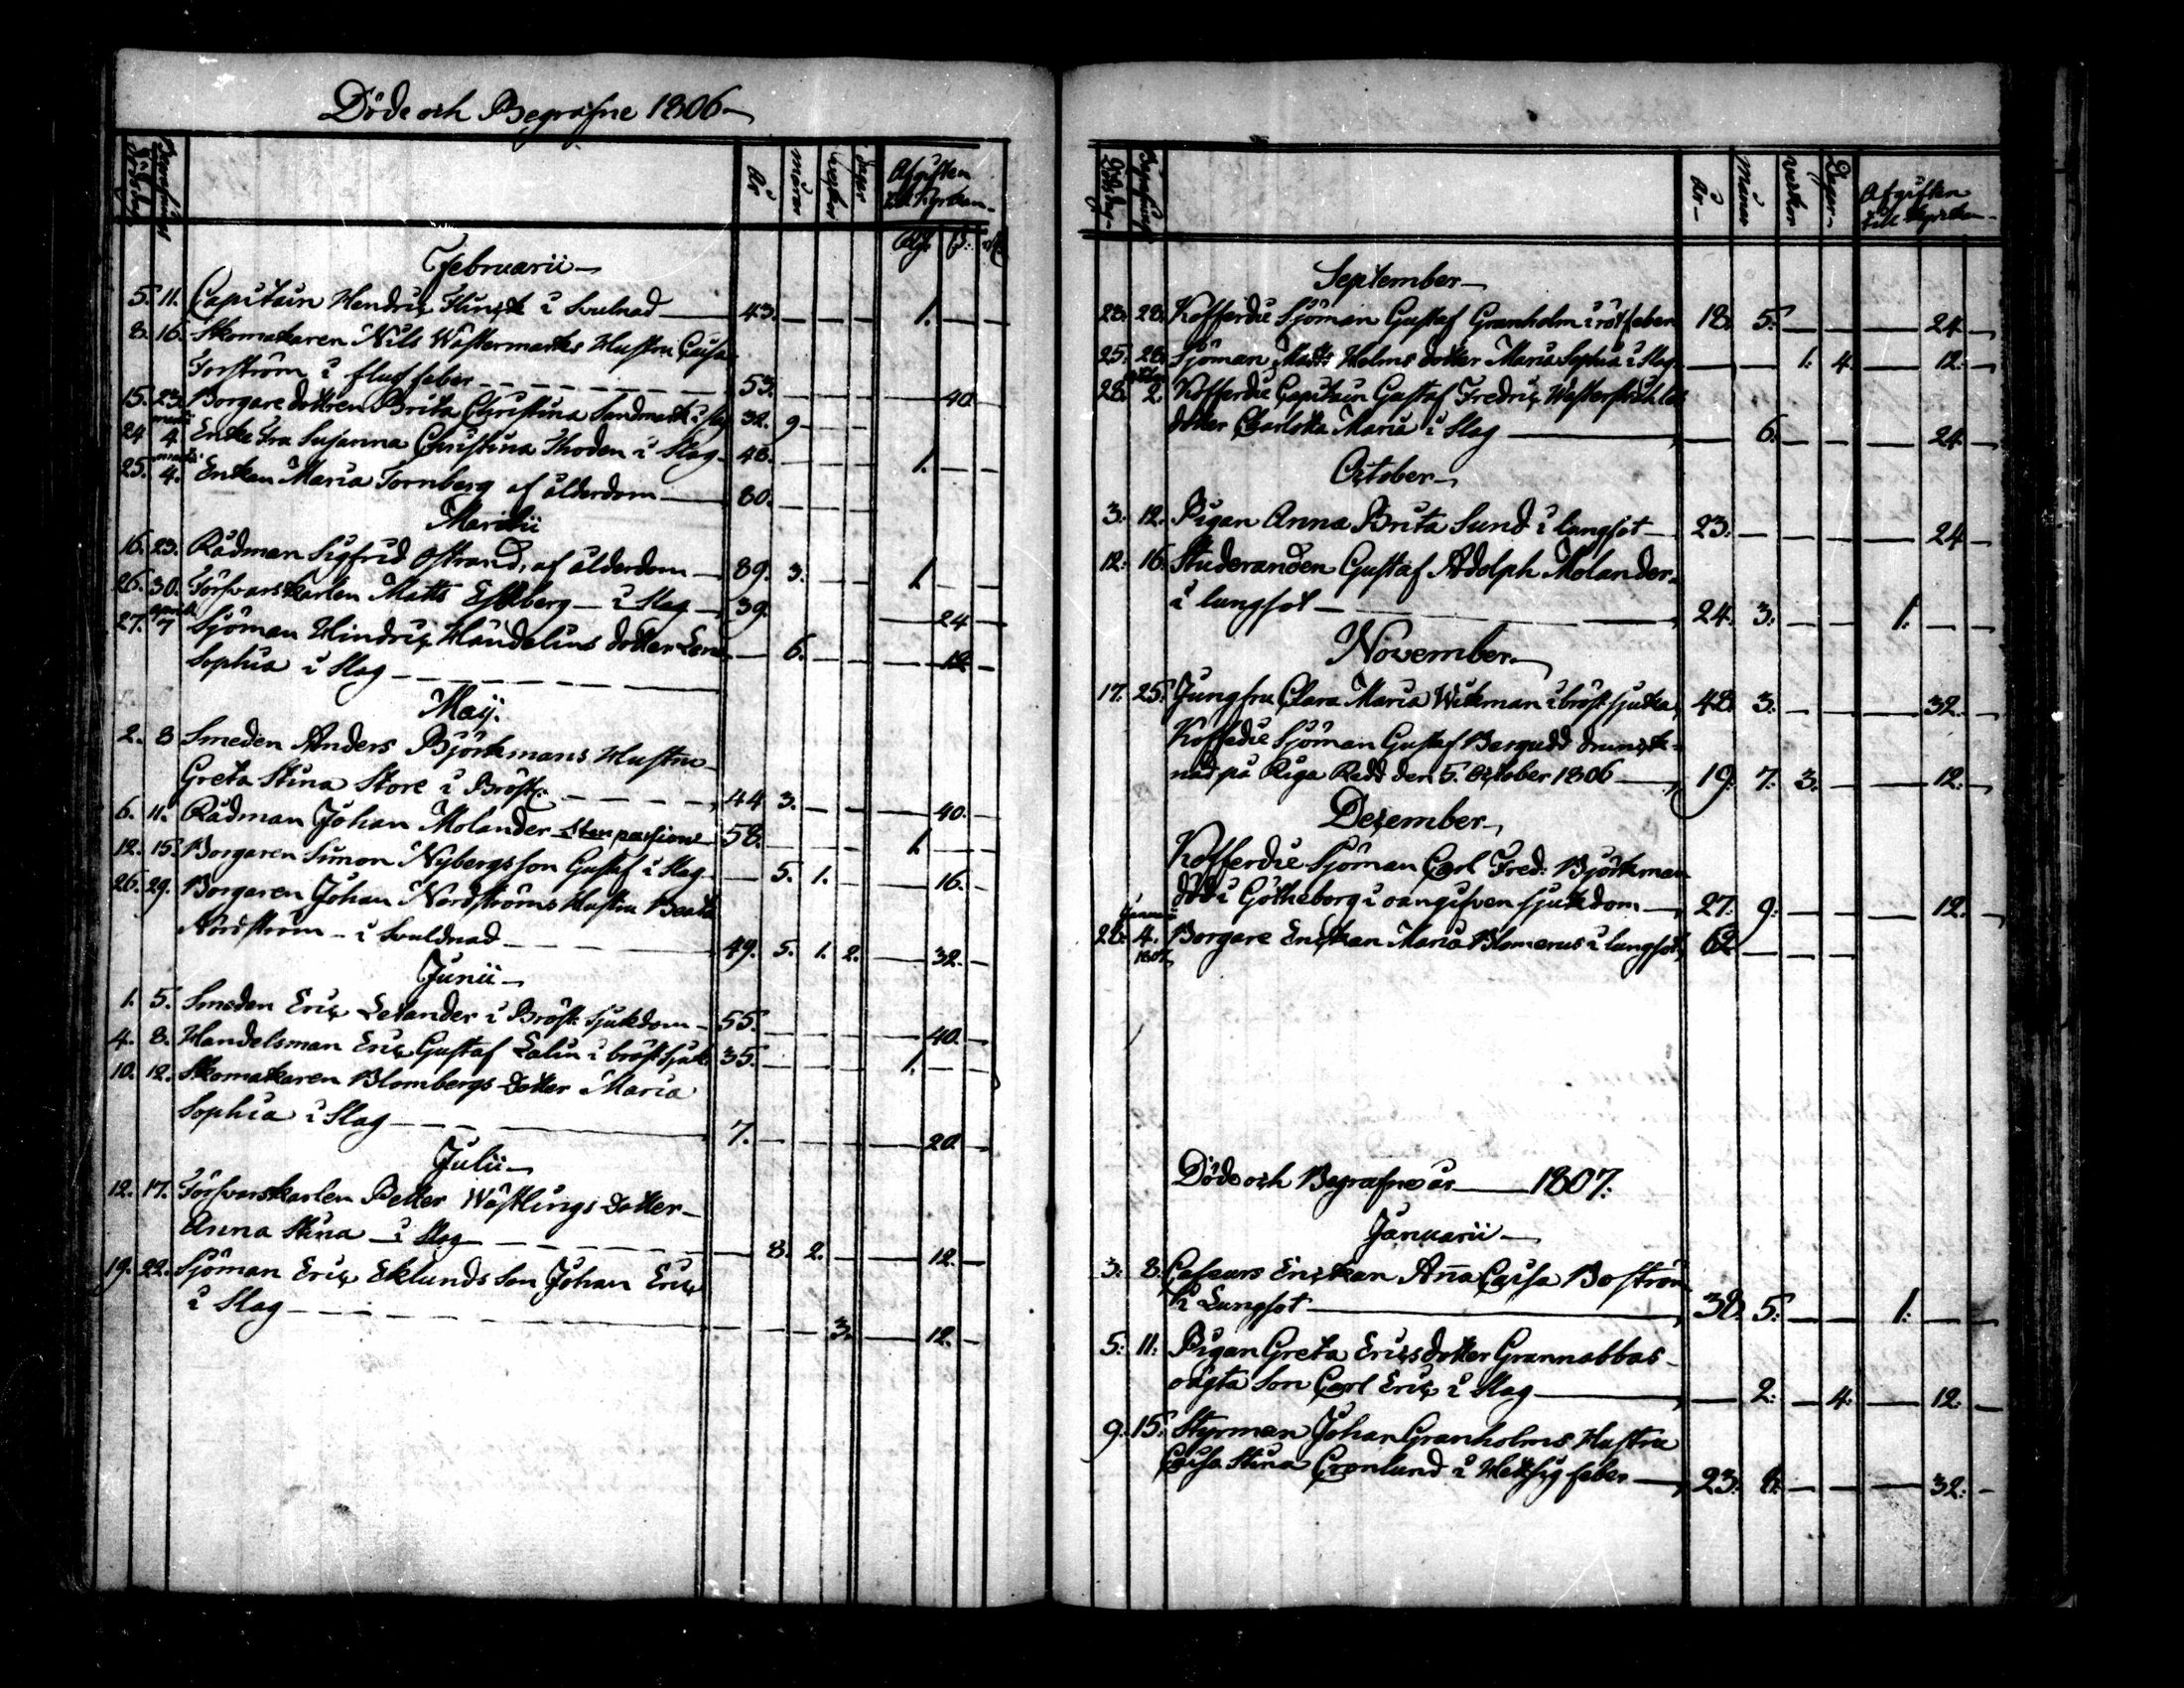 Döde och Begrafne 1806
Döds dag
Begrafnings dag
År
Månar
Veckor
Dagar
Afgiften
till Kyrckan
Februarii
5. 11. Capitain Hendric Flinck i Svulnad 43. 1.
8. 16. Skomakaren Nils Wästermarks Hustru Caisa
Forström i fluss feber 53. 40.
15. 23. Borgare dottren Brita Christina Sandmark i slag 32. 9
24 martii 4. Enke Fru Susanna Christina Thoden i Slag 48. 1.
25. martii 4. Enkan Maria Tornberg af ålderdom 80.
Martii
16. 23. Rådman Sigfrid Östrand, af ålderdom 89. 3. 1.
26. 30. Försvarskarlen Matts Ekberg i Slag 39. 24
27. april 7 Sjöman Hindric Handelins dotter Lena
Sophia i Slag 6. 12
Maij.
2. 8 Smeden Anders Björkmans Hustru
Greta Stina Store i Bröstc 44 3. 40.
6. 11. Rådman Johan Molander Sten passion 58. 1.
12. 15. Borgaren Simon Nybergs son Gustaf i Slag 5. 1. 16.
26. 29. Borgaren Johan Nordströms Hustru Beata
Nordström i Svuldnad 49. 5. 1. 2. 32.
Junii
1. 5. Smeden Eric Lelander i Bröst sjukdom 55. 40.
4. 8. Handelsman Eric Gustaf Lalin i bröst sjuk 35. 1.
10. 12. Skomakaren Blombergs dotter Maria
Sophia i Slag 7. 20.
Julii
12. 17. Försvarskarlen Petter Wästlings dotter
Anna Stina i Slag 8. 2. 12.
19. 22. Sjöman Eric Eklunds Son Johan Eric
i Slag 3. 12.
Döds dag
Begrafnings
År
Månar
veckor
Dagar
Afgiften
till Kyrckan
September
23. 28. Kofferdie Sjöman Gustaf Granholm i rötfeber 18. 5. 24
25. 28. Sjöman Matts Holms dotter Maria Sophia i Slag 1. 4. 12.
28. 2. Kofferdie Capitain Gustaf Fredric Westerståhles
dotter Charlotta Maria i Slag 6. 24
October
3. 12. Pigan Anna Brita Sund i lungsot 23. 24
12. 16. Studeranden Gustaf Adolph Molander
i lungsot 24. 3. 1.
November
17. 25. Jungfru Clara Maria Wikman i bröst sjuka 48. 3. 32.
Koffedie Sjöman Gustaf Bergudd drunck
nad på Riga Redd den 5. October 1806 19. 7. 3. 12.
December
Kofferdie Sjöman Carl Fred. Björkman
död i Götheborg i oangifven sjukdom 27. 9. 12.
28. Januarii 4. 1807 Borgare Enckan Maria Blomerus i lungsot 62
Döde och Begrafne år 1807:
Januarii
3. 8. Caseurs Enckan Anna Caisa Boström
i Lungsot 38. 5. 1.
5. 11. Pigan Greta Ericsdotter Grannabbas
oägta Son Carl Eric i Slag 2. 4. 12.
9. 15. Styrman Johan Granholms Hustru
Caisa Stina Cronlund i Hetsig feber 23. 8. 32.